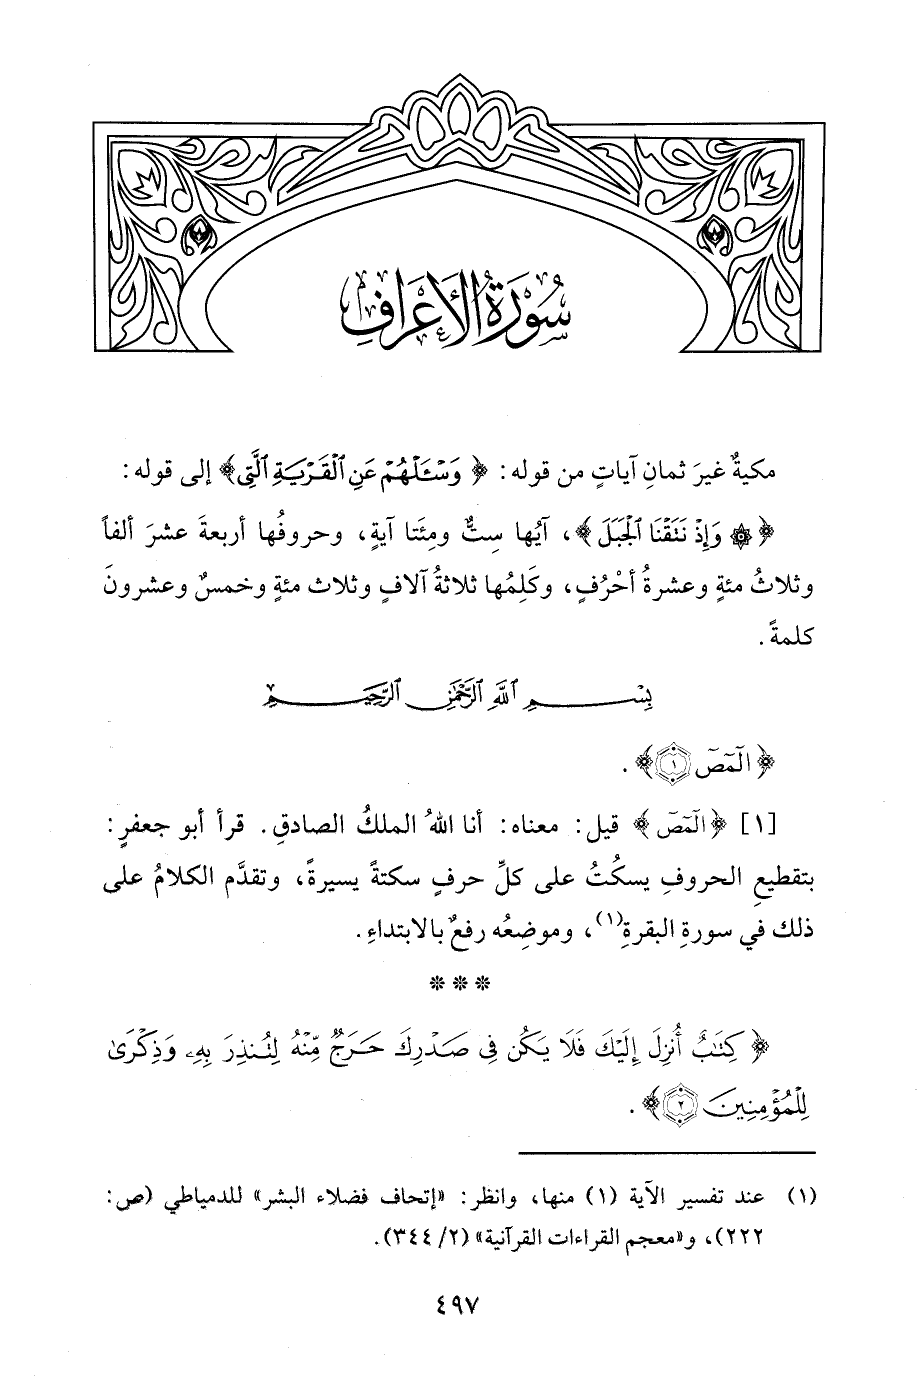 سُورَةُ الأَعْرَافِ
مكيةٌ غيرَ ثمانِ آياتٍ من قوله: ﴿وَسْـَٔلْهُمْ عَنِ ٱلْقَرْيَةِ ٱلَّتِى﴾ إلى قوله:
﴿۞ وَإِذْ نَتَقْنَا ٱلْجَبَلَ﴾، آيُها سِتٌّ ومِئَتا آيةٍ، وحروفُها أربعةَ عشرَ ألفاً
وثلاثُ مئةٍ وعشرةُ أحْرُفٍ، وكَلِمُها ثلاثةُ آلافٍ وثلاث مئةٍ وخمسٌ وعشرونَ
كلمةً.
بِسْمِ ٱللَّهِ ٱلرَّحْمَٰنِ ٱلرَّحِيمِ
﴿الٓمٓصٓ ۝١﴾.
[١] ﴿الٓمٓصٓ﴾ قيل: معناه: أنا اللهُ الملكُ الصادقِ. قرأ أبو جعفرٍ:
بتقطيعِ الحروفِ يسكُتُ على كلِّ حرفٍ سكتةً يسيرةً، وتقدَّم الكلامُ على
ذلك في سورةِ البقرةِ(١)، وموضِعُه رفعٌ بالابتداءِ.
* * *
﴿كِتَٰبٌ أُنزِلَ إِلَيْكَ فَلَا يَكُن فِى صَدْرِكَ حَرَجٌ مِّنْهُ لِتُنذِرَ بِهِۦ وَذِكْرَىٰ
لِلْمُؤْمِنِينَ ۝٢﴾.
(١) عند تفسير الآية (١) منها، وانظر: «إتحاف فضلاء البشر» للدمياطي (ص:
٢٢٢)، و«معجم القراءات القرآنية» (٢/ ٣٤٤).
٤٩٧